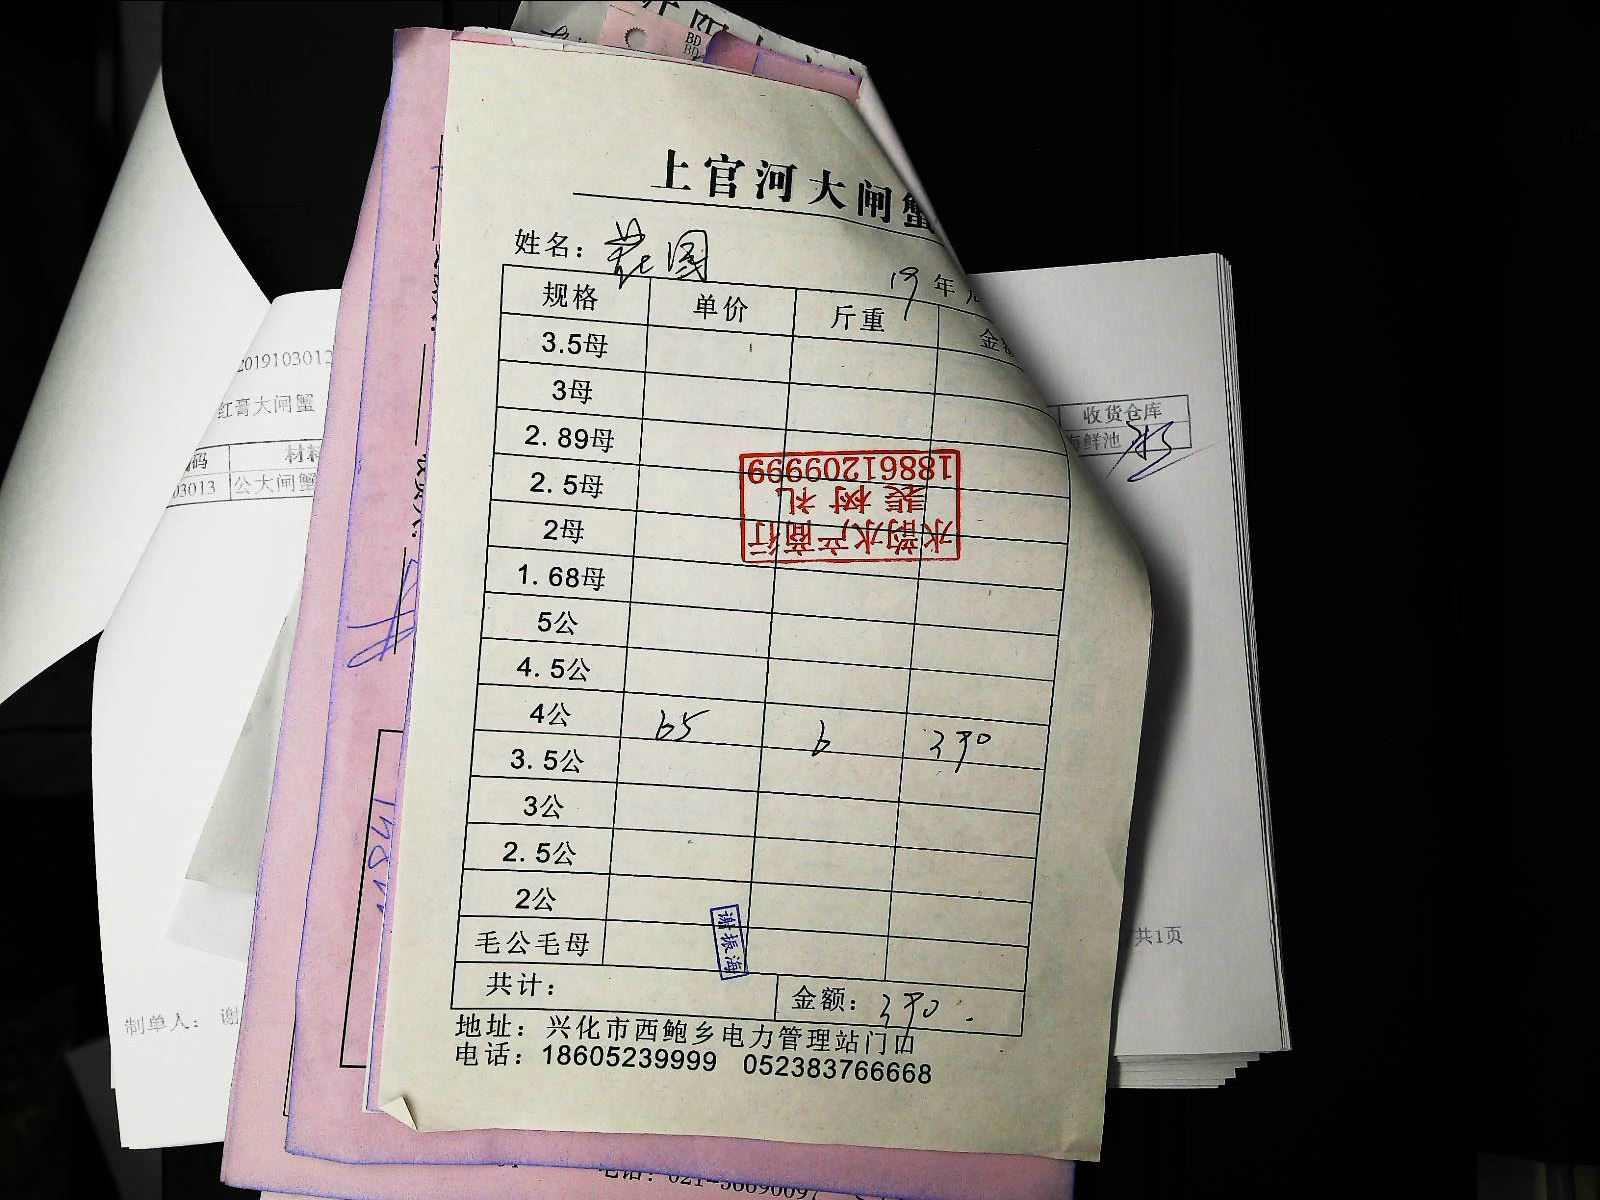 上官河大闸蟹
姓名：花图
19年
规格 单价 斤重 金额
3.5母
3母
2.89母
2.5母
2母
1.68母
5公
4.5公
4公 65 6 390
3.5公
3公
2.5公
2公
毛公毛母
共计： 金额：390.
地址：兴化市西鲍乡电力管理站门口
电话：18605239999 052383766668
水韵水产商行
裴树礼
18861209999
谢振海
201910301
红膏大闸蟹
码 材料
03013 公大闸蟹
制单人：谢
收货仓库
海鲜池
共1页
BD
BD
电话：021-56690097